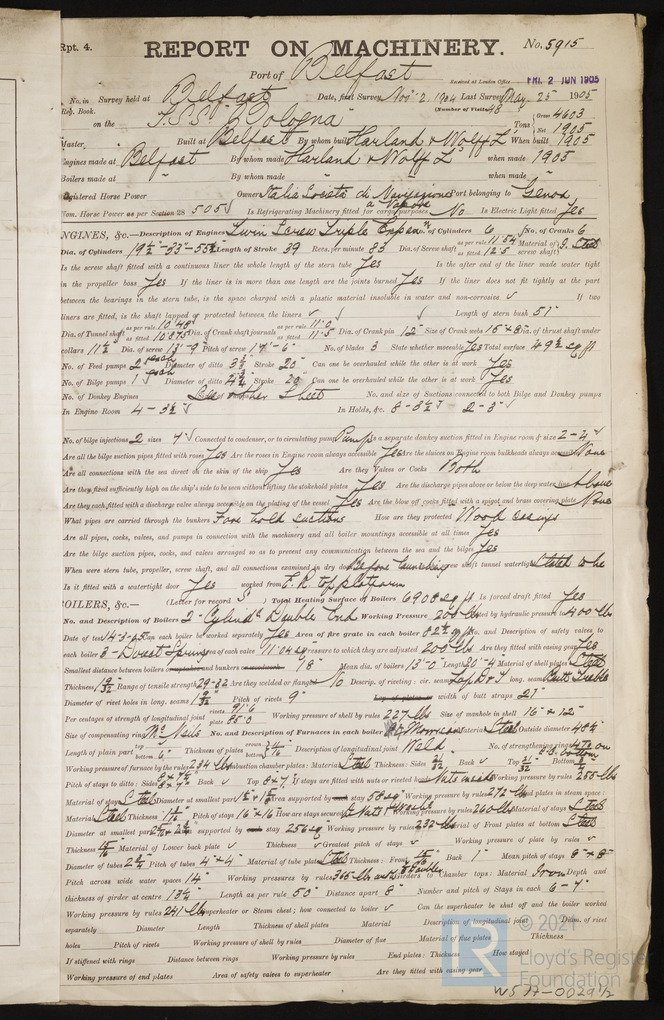 Rpt. 4.
REPORT ON MACHINERY.
No. 5915
Port of Belfast
Received at London Office FRI. 2 JUN 1905
No. in Survey held at Belfast Date, first Survey Nov 2, 1904 Last Survey May 25 1905
Reg. Book. (Number of Visits 48
on the T.S.S. "Bologna" Tons Gross 4603 Net
Master, Built at Belfast By whom built Harland & Wolff Ld When built 1905
Engines made at Belfast By whom made Harland & Wolff Ld when made 1905
Boilers made at " By whom made " when made 1905
Registered Horse Power Owners Italia Societa di Navigazione a Vapore Port belonging to Genoa
Nom. Horse Power as per Section 28 505 Is Refrigerating Machinery fitted for cargo purposes No Is Electric Light fitted Yes
ENGINES, &c.—Description of Engines Twin Screw Triple Expan No. of Cylinders 6 No. of Cranks 6
Dia. of Cylinders 19½-33-55½ Length of Stroke 39 Revs. per minute 83 Dia. of Screw shaft as per rule 11.54 as fitted 12.5 Material of screw shaft S. Steel
Is the screw shaft fitted with a continuous liner the whole length of the stern tube Yes Is the after end of the liner made water tight
in the propeller boss Yes If the liner is in more than one length are the joints burned Yes If the liner does not fit tightly at the part
between the bearings in the stern tube, is the space charged with a plastic material insoluble in water and non-corrosive ✓ If two
liners are fitted, is the shaft lapped or protected between the liners ✓ Length of stern bush 51"
Dia. of Tunnel shaft as per rule 10.48 as fitted 10.875 Dia. of Crank shaft journals as per rule 11.0 as fitted 11.5 Dia. of Crank pin 12" Size of Crank webs Dia. of thrust shaft under
collars 11½ Dia. of screw 13'-9" Pitch of screw 17'-6" No. of blades 3 State whether moveable Yes Total surface 49½ sq ft
No. of Feed pumps 2 each Diameter of ditto 3½ Stroke 20" Can one be overhauled while the other is at work Yes
No. of Bilge pumps 1 each Diameter of ditto Stroke 20" Can one be overhauled while the other is at work Yes
No. of Donkey Engines See other Sheet No. and size of Suctions connected to both Bilge and Donkey pumps
In Engine Room 4 - 3½" In Holds, &c. 8 - 3½" 2 - 3"
No. of bilge injections 2 sizes 7" Connected to condenser, or to circulating pump Pump Is a separate donkey suction fitted in Engine room & size 2-4"
Are all the bilge suction pipes fitted with roses Yes Are the roses in Engine room always accessible Yes Are the sluices on Engine room bulkheads always accessible None
Are all connections with the sea direct on the skin of the ship Yes Are they Valves or Cocks Both
Are they fixed sufficiently high on the ship's side to be seen without lifting the stokehold plates Yes Are the discharge pipes above or below the deep water line Above
Are they each fitted with a discharge valve always accessible on the plating of the vessel Yes Are the blow off cocks fitted with a spigot and brass covering plate None
What pipes are carried through the bunkers Fore hold suctions How are they protected Wood casings
Are all pipes, cocks, valves, and pumps in connection with the machinery and all boiler mountings accessible at all times Yes
Are the bilge suction pipes, cocks, and valves arranged so as to prevent any communication between the sea and the bilges Yes
When were stern tube, propeller, screw shaft, and all connections examined in dry dock Before launching Is the screw shaft tunnel watertight Stated to be
Is it fitted with a watertight door Yes worked from E.R. top platform
BOILERS, &c.— (Letter for record S) Total Heating Surface of Boilers 6908 sq ft Is forced draft fitted Yes
No. and Description of Boilers 2 - Cylindl Double End Working Pressure 200 lbs Tested by hydraulic pressure to 400 lbs
Date of test 14-3-05 Can each boiler be worked separately Yes Area of fire grate in each boiler 82½ sq ft No. and Description of safety valves to
each boiler 3 - Direct Spring Area of each valve 11.04 sq Pressure to which they are adjusted 200 lbs Are they fitted with easing gear Yes
Smallest distance between boilers or uptakes and bunkers or woodwork 18" Mean dia. of boilers 13'-0" Length 20'-4" Material of shell plates Steel
Thickness 1 9/32 Range of tensile strength 29-32 Are they welded or flanged No Descrip. of riveting: cir. seams Lap D & T long. seams Butt Treble
Diameter of rivet holes in long. seams 1 9/32 Pitch of rivets 9" Lap of plates or width of butt straps 21"
Per centages of strength of longitudinal joint rivets 91.6 plate 85.0 Working pressure of shell by rules 227 lbs Size of manhole in shell 16" x 12"
Size of compensating ring McNeils No. and Description of Furnaces in each boiler Morrison Material Steel Outside diameter 48¼
Length of plain part top bottom 6" Thickness of plates crown bottom Description of longitudinal joint Weld No. of strengthening rings
Working pressure of furnace by the rules 234 lbs Combustion chamber plates: Material Steel Thickness: Sides 21/32 Back ✓ Top 21/32 Bottom
Pitch of stays to ditto: Sides Back ✓ Top 8 x 7¾ If stays are fitted with nuts or riveted heads Nuts inside Working pressure by rules 255 lbs
Material of stays Steel Diameter at smallest part Area supported by each stay 58 sq" Working pressure by rules 272 lbs End plates in steam space:
Material Steel Thickness Pitch of stays 16 x 16 How are stays secured D Nuts & Washers Working pressure by rules 260 lbs Material of stays Steel
Diameter at smallest part Area supported by each stay 256 sq" Working pressure by rules 232 lbs Material of Front plates at bottom Steel
Thickness 15/16 Material of Lower back plate ✓ Thickness ✓ Greatest pitch of stays ✓ Working pressure of plate by rules ✓
Diameter of tubes 2¾ Pitch of tubes 4" x 4" Material of tube plates Steel Thickness: Front 15/16 Back 1" Mean pitch of stays 8" x 8"
Pitch across wide water spaces 14" Working pressures by rules Girders to Chamber tops: Material Iron Depth and
thickness of girder at centre 13½" Length as per rule 50" Distance apart 8" Number and pitch of Stays in each 6 - 7"
Working pressure by rules 241 lbs Superheater or Steam chest; how connected to boiler ✓ Can the superheater be shut off and the boiler worked
separately Diameter Length Thickness of shell plates Material Description of longitudinal joint Diam. of rivet
holes Pitch of rivets Working pressure of shell by rules Diameter of flue Material of flue plates Thickness
If stiffened with rings Distance between rings Working pressure by rules End plates: Thickness How stayed
Working pressure of end plates Area of safety valves to superheater Are they fitted with easing gear
© 2021
Lloyd's Register
Foundation
W577-0029½